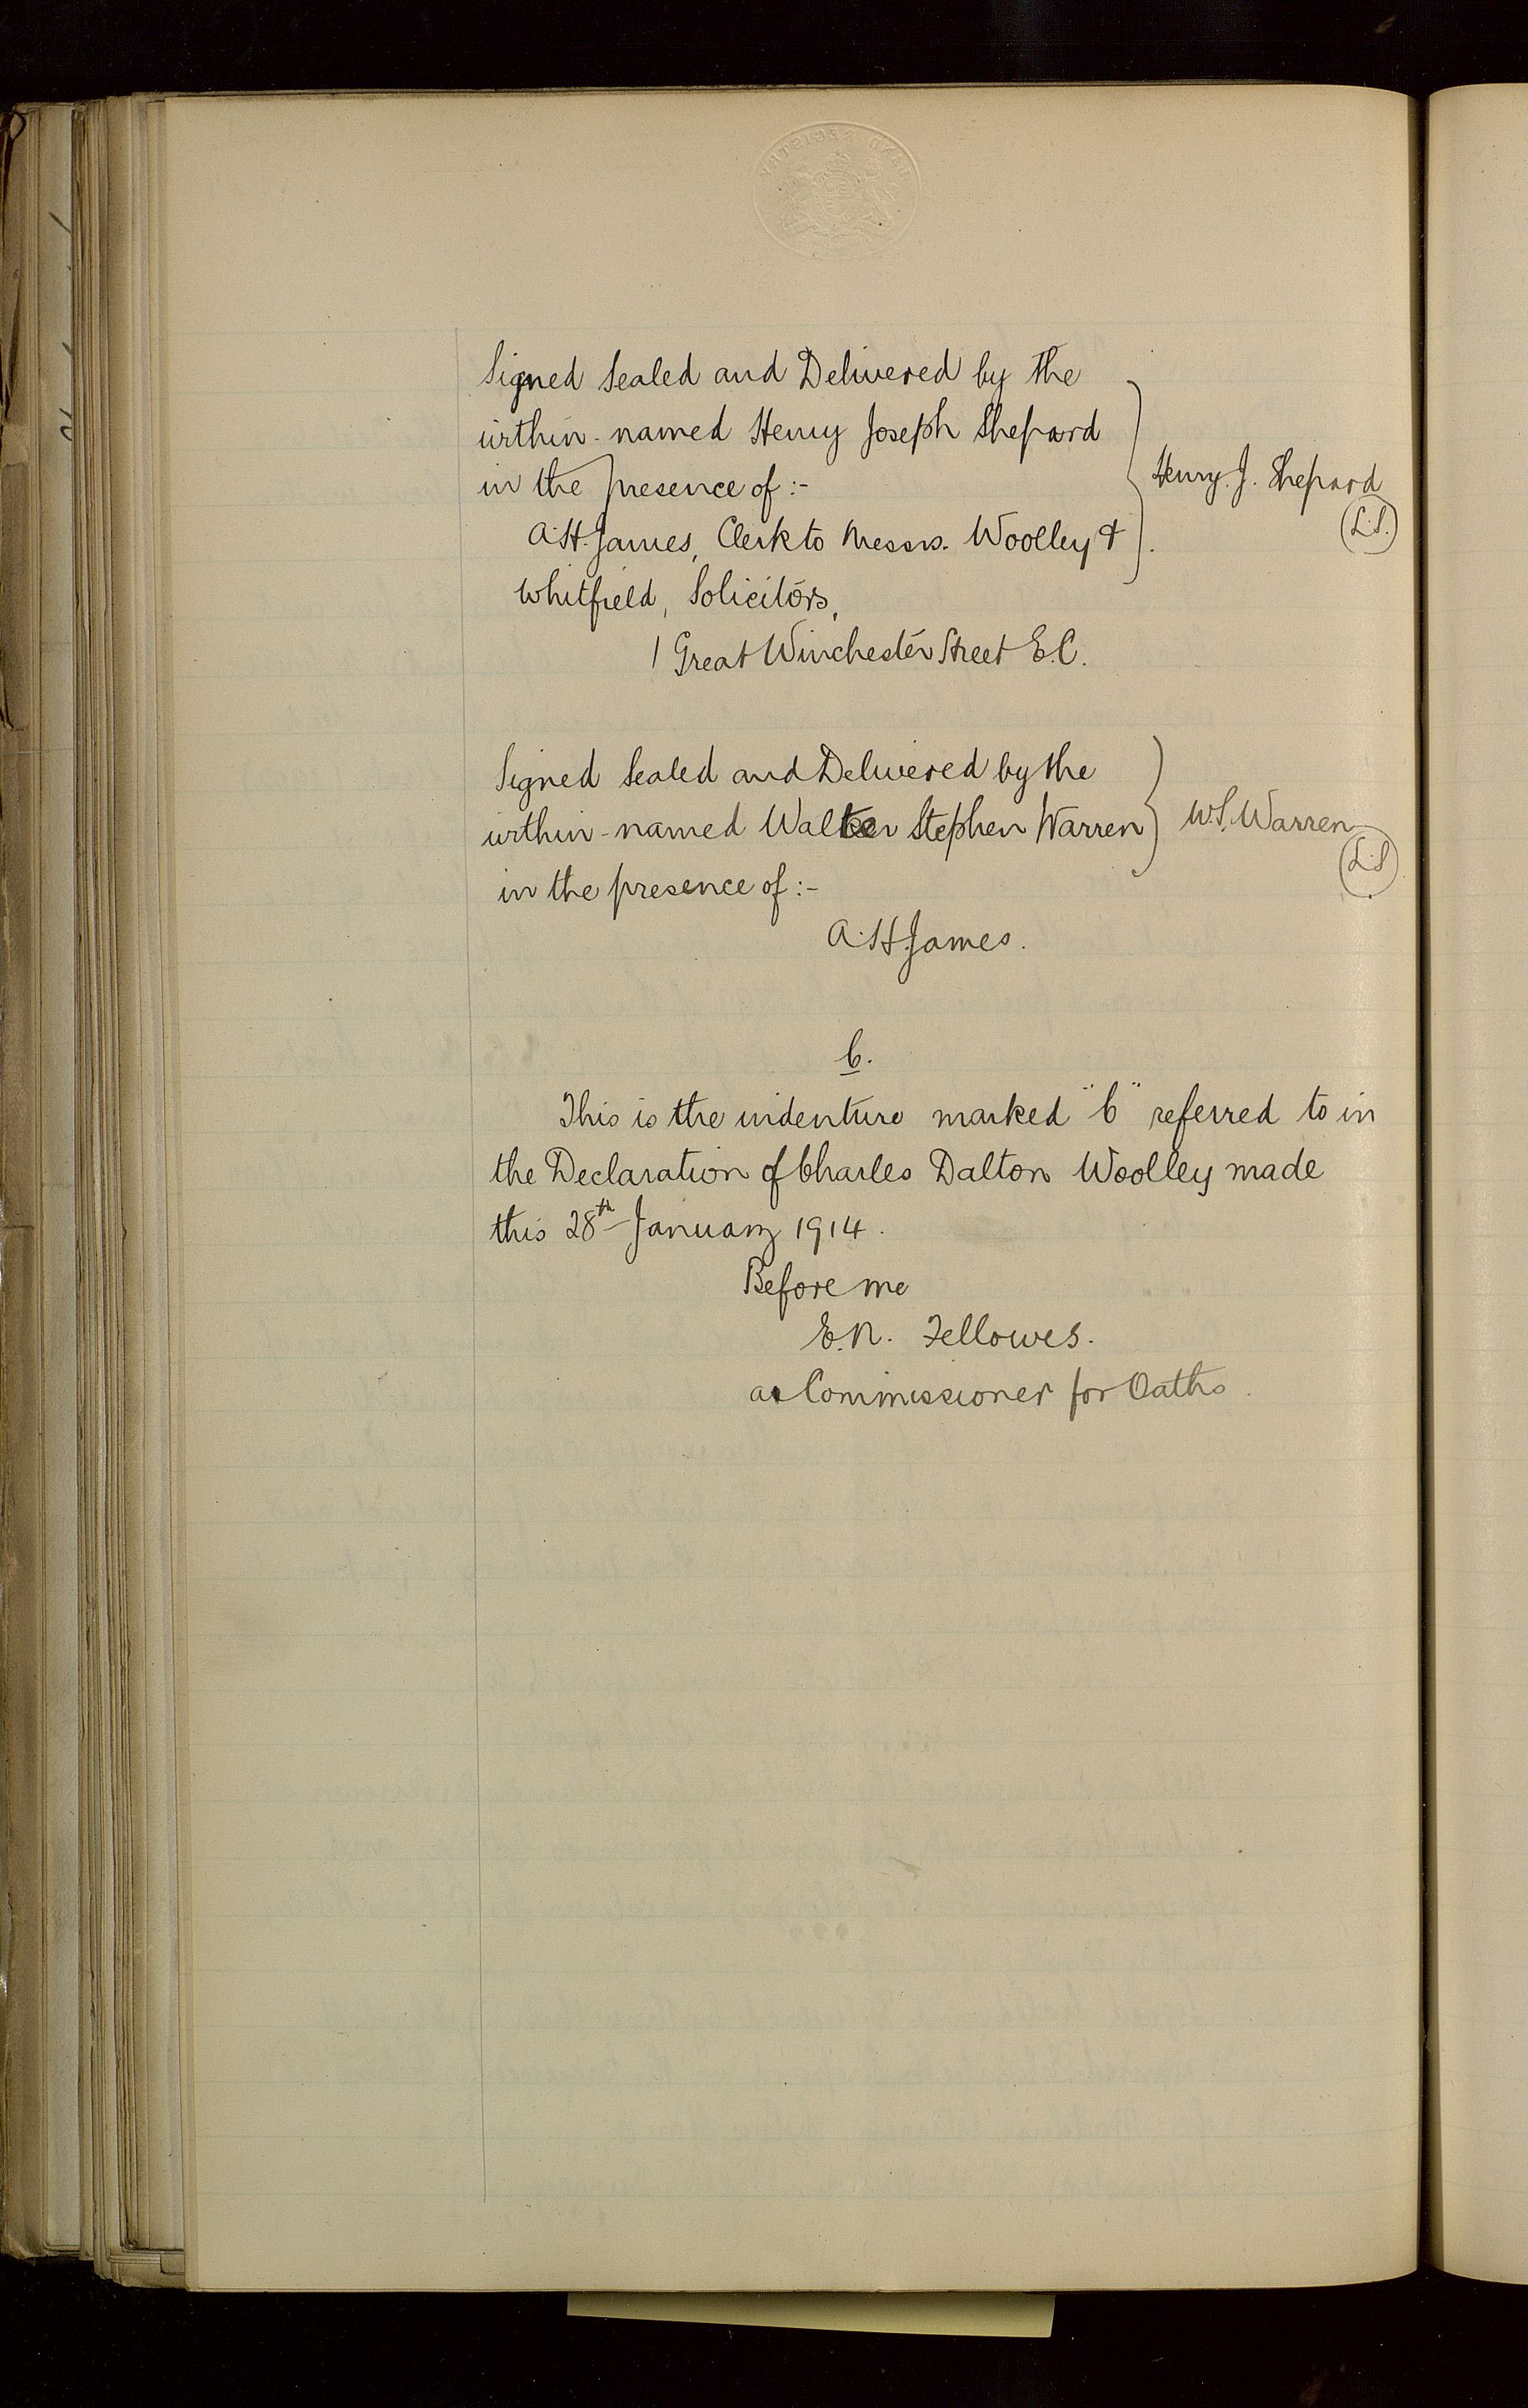 Signed Sealed and Delivered by the
within-named Henry Joseph Shepard
in the presence of:-
Henry. J. Shepard
L.S.
A.H. James, Clerk to Messrs. Woolley &
Whitfield, Solicitors,
1 Great Winchester Street E.C.
Signed Sealed and Delivered by the
within-named Walter Stephen Warren
W.S. Warren
L.S
in the presence of:-
A.H. James.
C.
This is the indenture marked "C" referred to in
the Declaration of Charles Dalton Woolley made
this 28th January 1914.
Before me
E.N. Fellowes.
a Commissioner for Oaths.